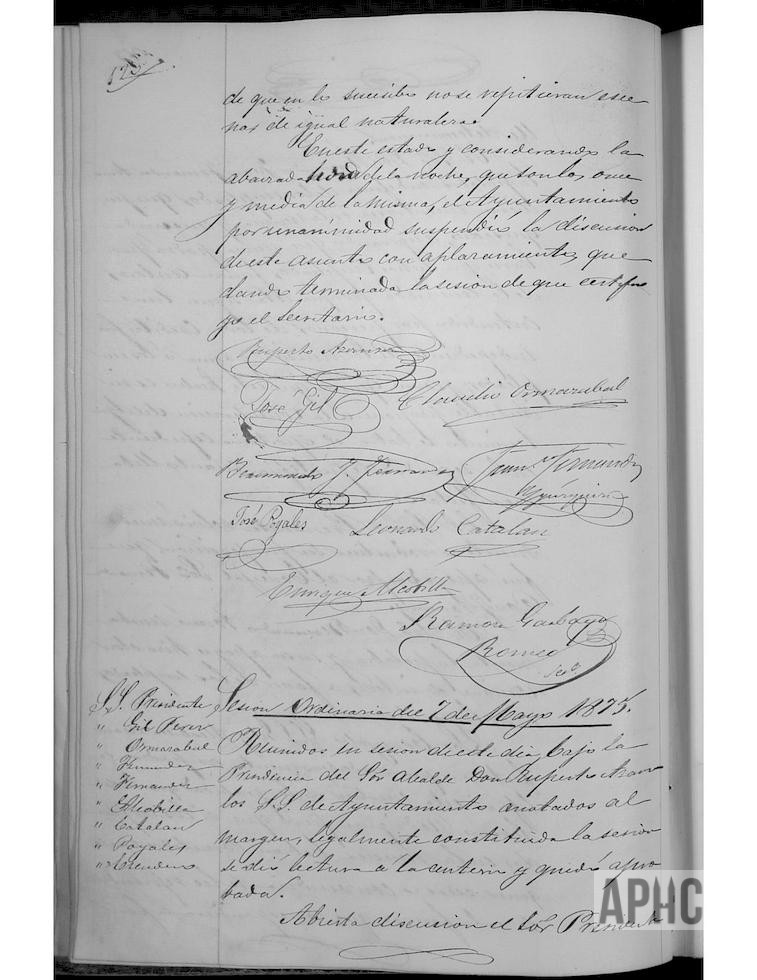 de que en lo sucesibo no se repitieran esce
nas de igual naturaleza.
En este estado y considerando la
abanzada hora de la noche, que son las once
y media de la misma, el Ayuntamiento
por unanimidad suspendió la discusion
de este asunto con aplazamiento, que
dando terminada la sesion de que certifico
yo el Secretario.
Ruperto
José Gil
Claudio Ormazabal
Fernandez
Fernandez
José Pozales
Leonardo Catalan
Enrique Alcobilla
Ramon Garbayo
Romeo
Secº
Sesion Ordinaria del 7 de Mayo 1875.
S.S. Presidente
" Gil Perez
" Ormazabal
" Fernandez
" Fernandez
" Alcobilla
" Catalan
" Pozales
Reunidos en sesion de este dia, bajo la
Presidencia del Sor Alcalde Don Ruperto
los S.S. de Ayuntamiento anotados al
margen, legalmente constituida la sesion
se dió lectura á la anterior y quedó apro
bada.
Abierta discusion el Sor Presidente
APHC